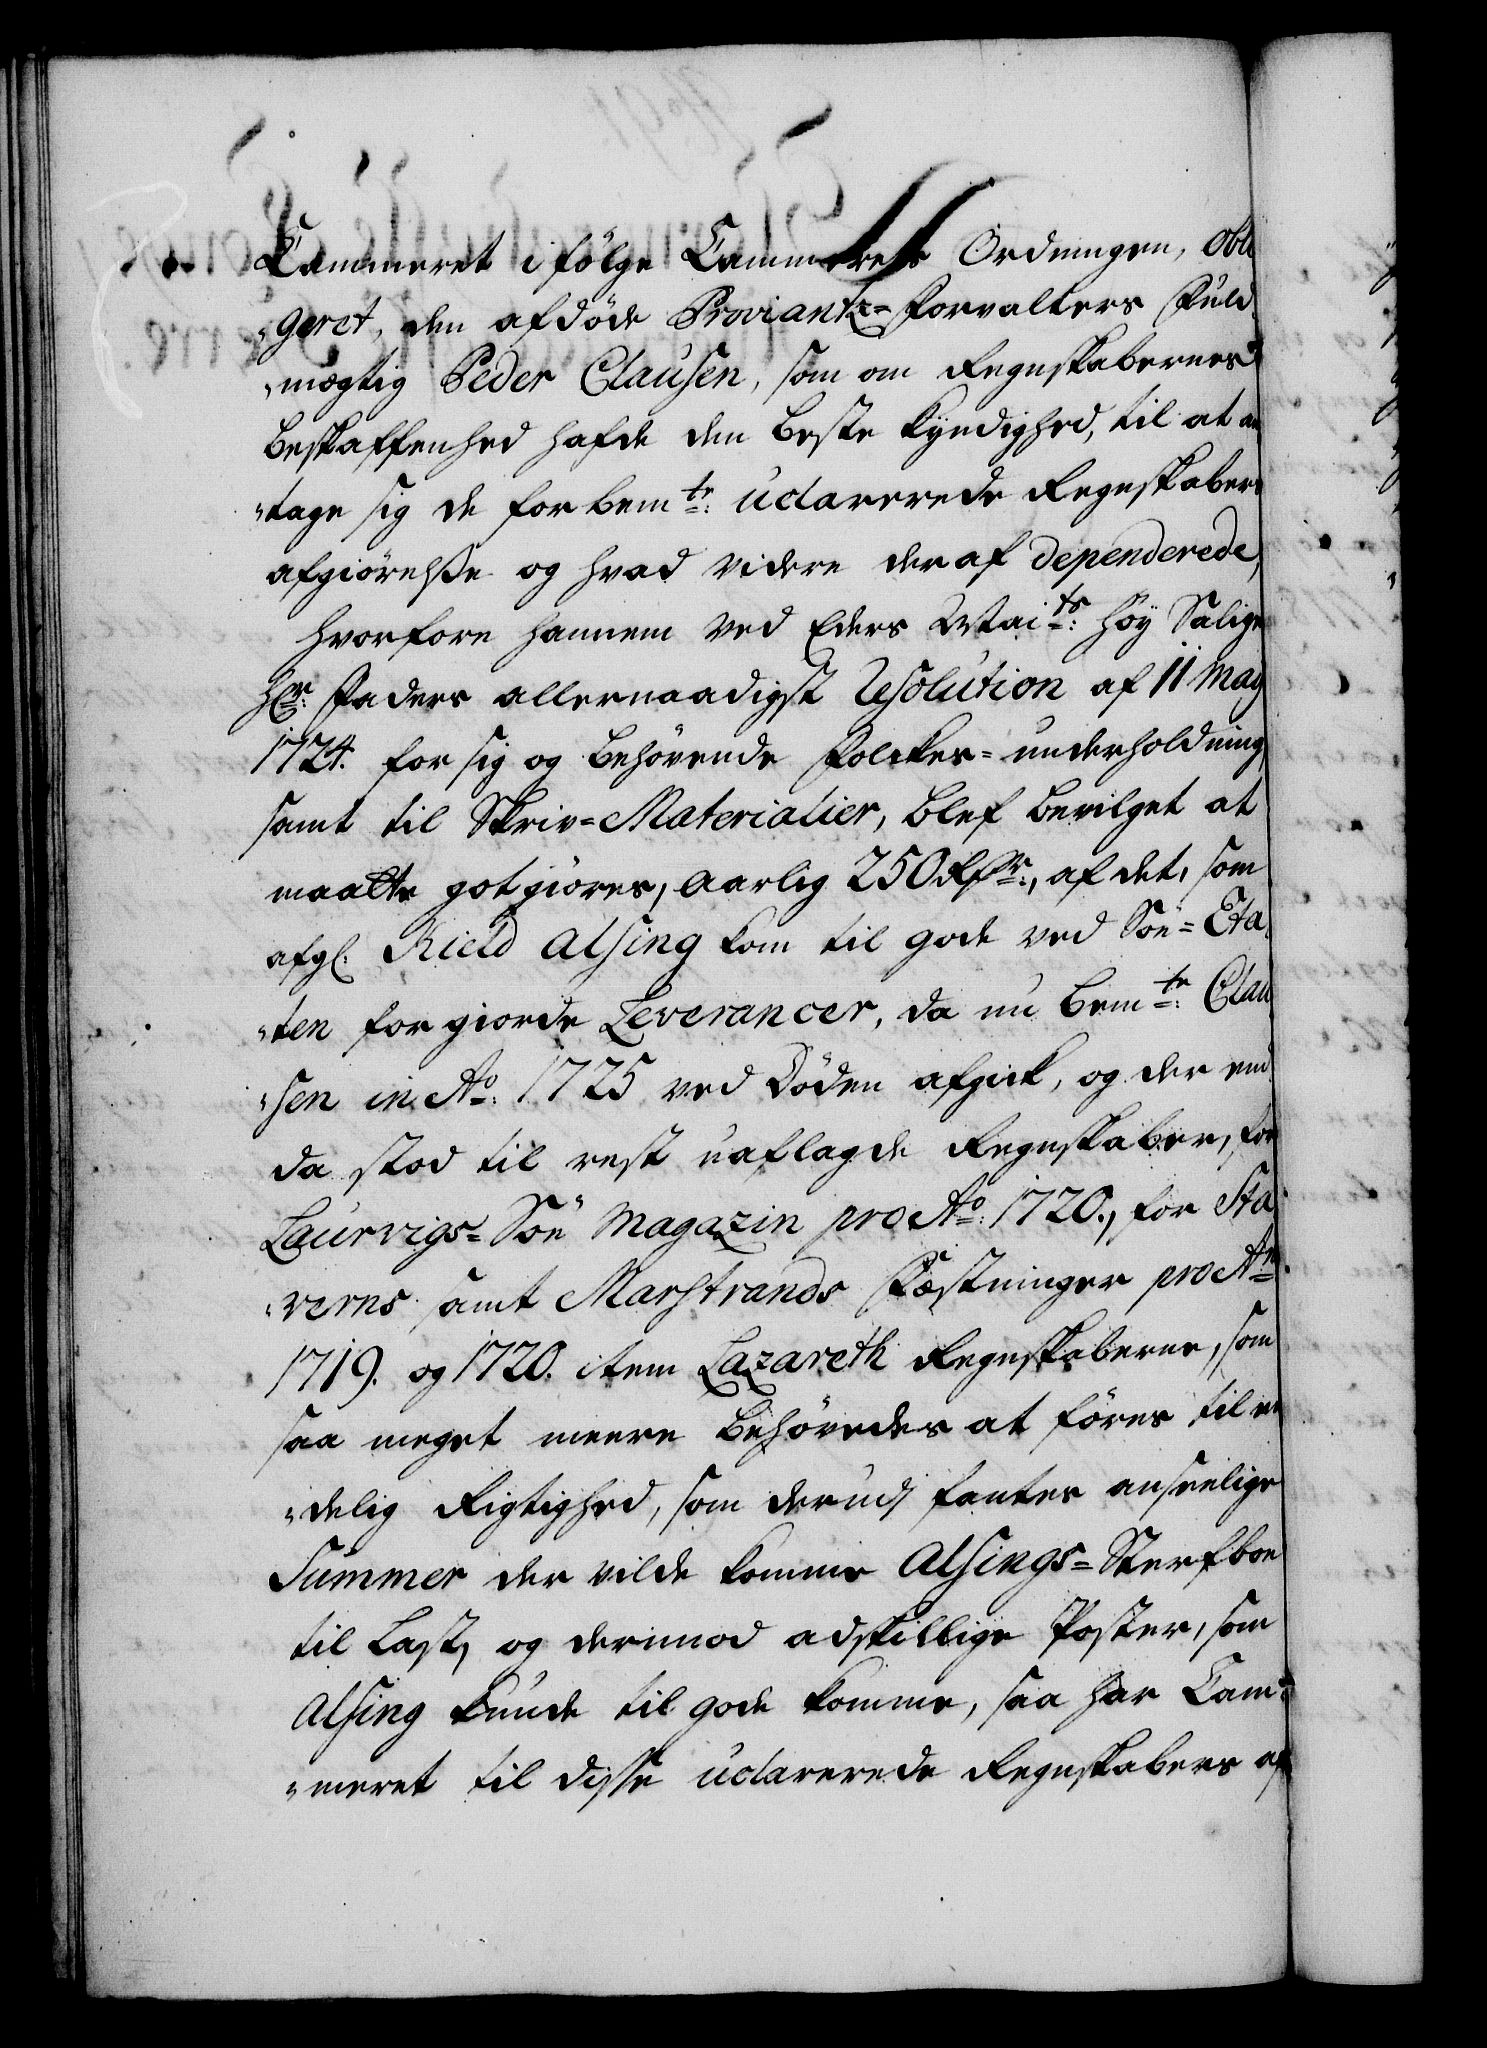 Cammeret i følge Cammerets Ordningen, obli
„geret, den afdöde Proviantz-Forvalters Fuld
„mægtig Peder Clausen, som om Regnskabernes
beskaffenhed hafde den beste kyndighed, til at an
„tage sig de forbem.te uclarerede Regnskabers
afgiörelsse og hvad videre deraf dependerede,
hvorfore hannem ved Eders Mai.ts Höy Salige
Hr. Faders allernaadigst Resolution af 11 May
1724. for sig og behövende Folckes-underholdning
samt til Skriv-Materialier, blef bevilget at
maatte gotgiöres, aarlig 250 Rdr., af det, som
afgl. Kield Alsing kom til gode ved Söe-Eta
„ten for giorde Leverancer, da nu bem.te Clau
„sen in Ao. 1725 ved Döden afgick, og der end
da stod til rest uaflagde Regnskaber, for
Laurvigs-Söe Magazin pro Ao. 1720., for Sta
„verns samt Marstrands Fæstninger pro An
1719. og 1720. item Lazareth Regnskaberne, som
saa meget meere behövedes at föres til en
„delig Rigtighed, som derudj fantes anseelige
Summer der vilde komme Alsings-Sterfboe
til Last, og derimod adskillige Poster, som
Alsing kunde til gode komme, saa har Cam-
„meret til disse uclarerede Regnskabers af